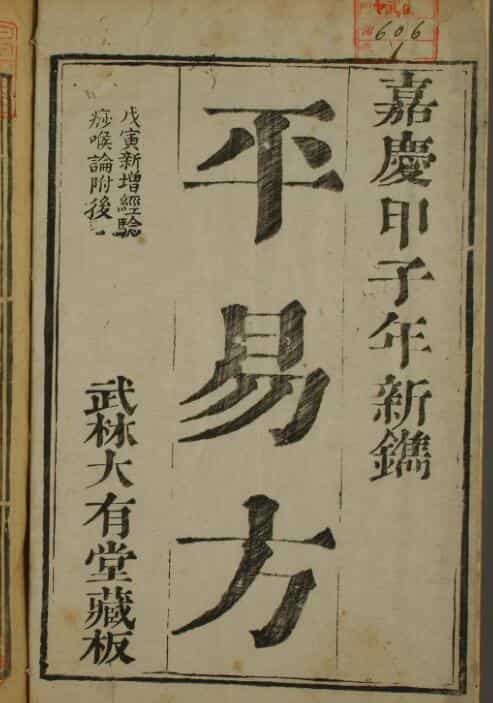 606
1
嘉慶甲子年新鐫
平易方
戊寅新增經驗
痧喉論附後
武林大有堂藏板